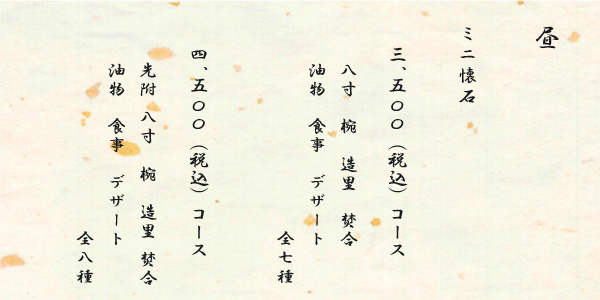 昼
ミニ懐石
三、五〇〇（税込）コース
八寸 椀 造里 焚合
油物 食事 デザート
全七種
四、五〇〇（税込）コース
先附 八寸 椀 造里 焚合
油物 食事 デザート
全八種